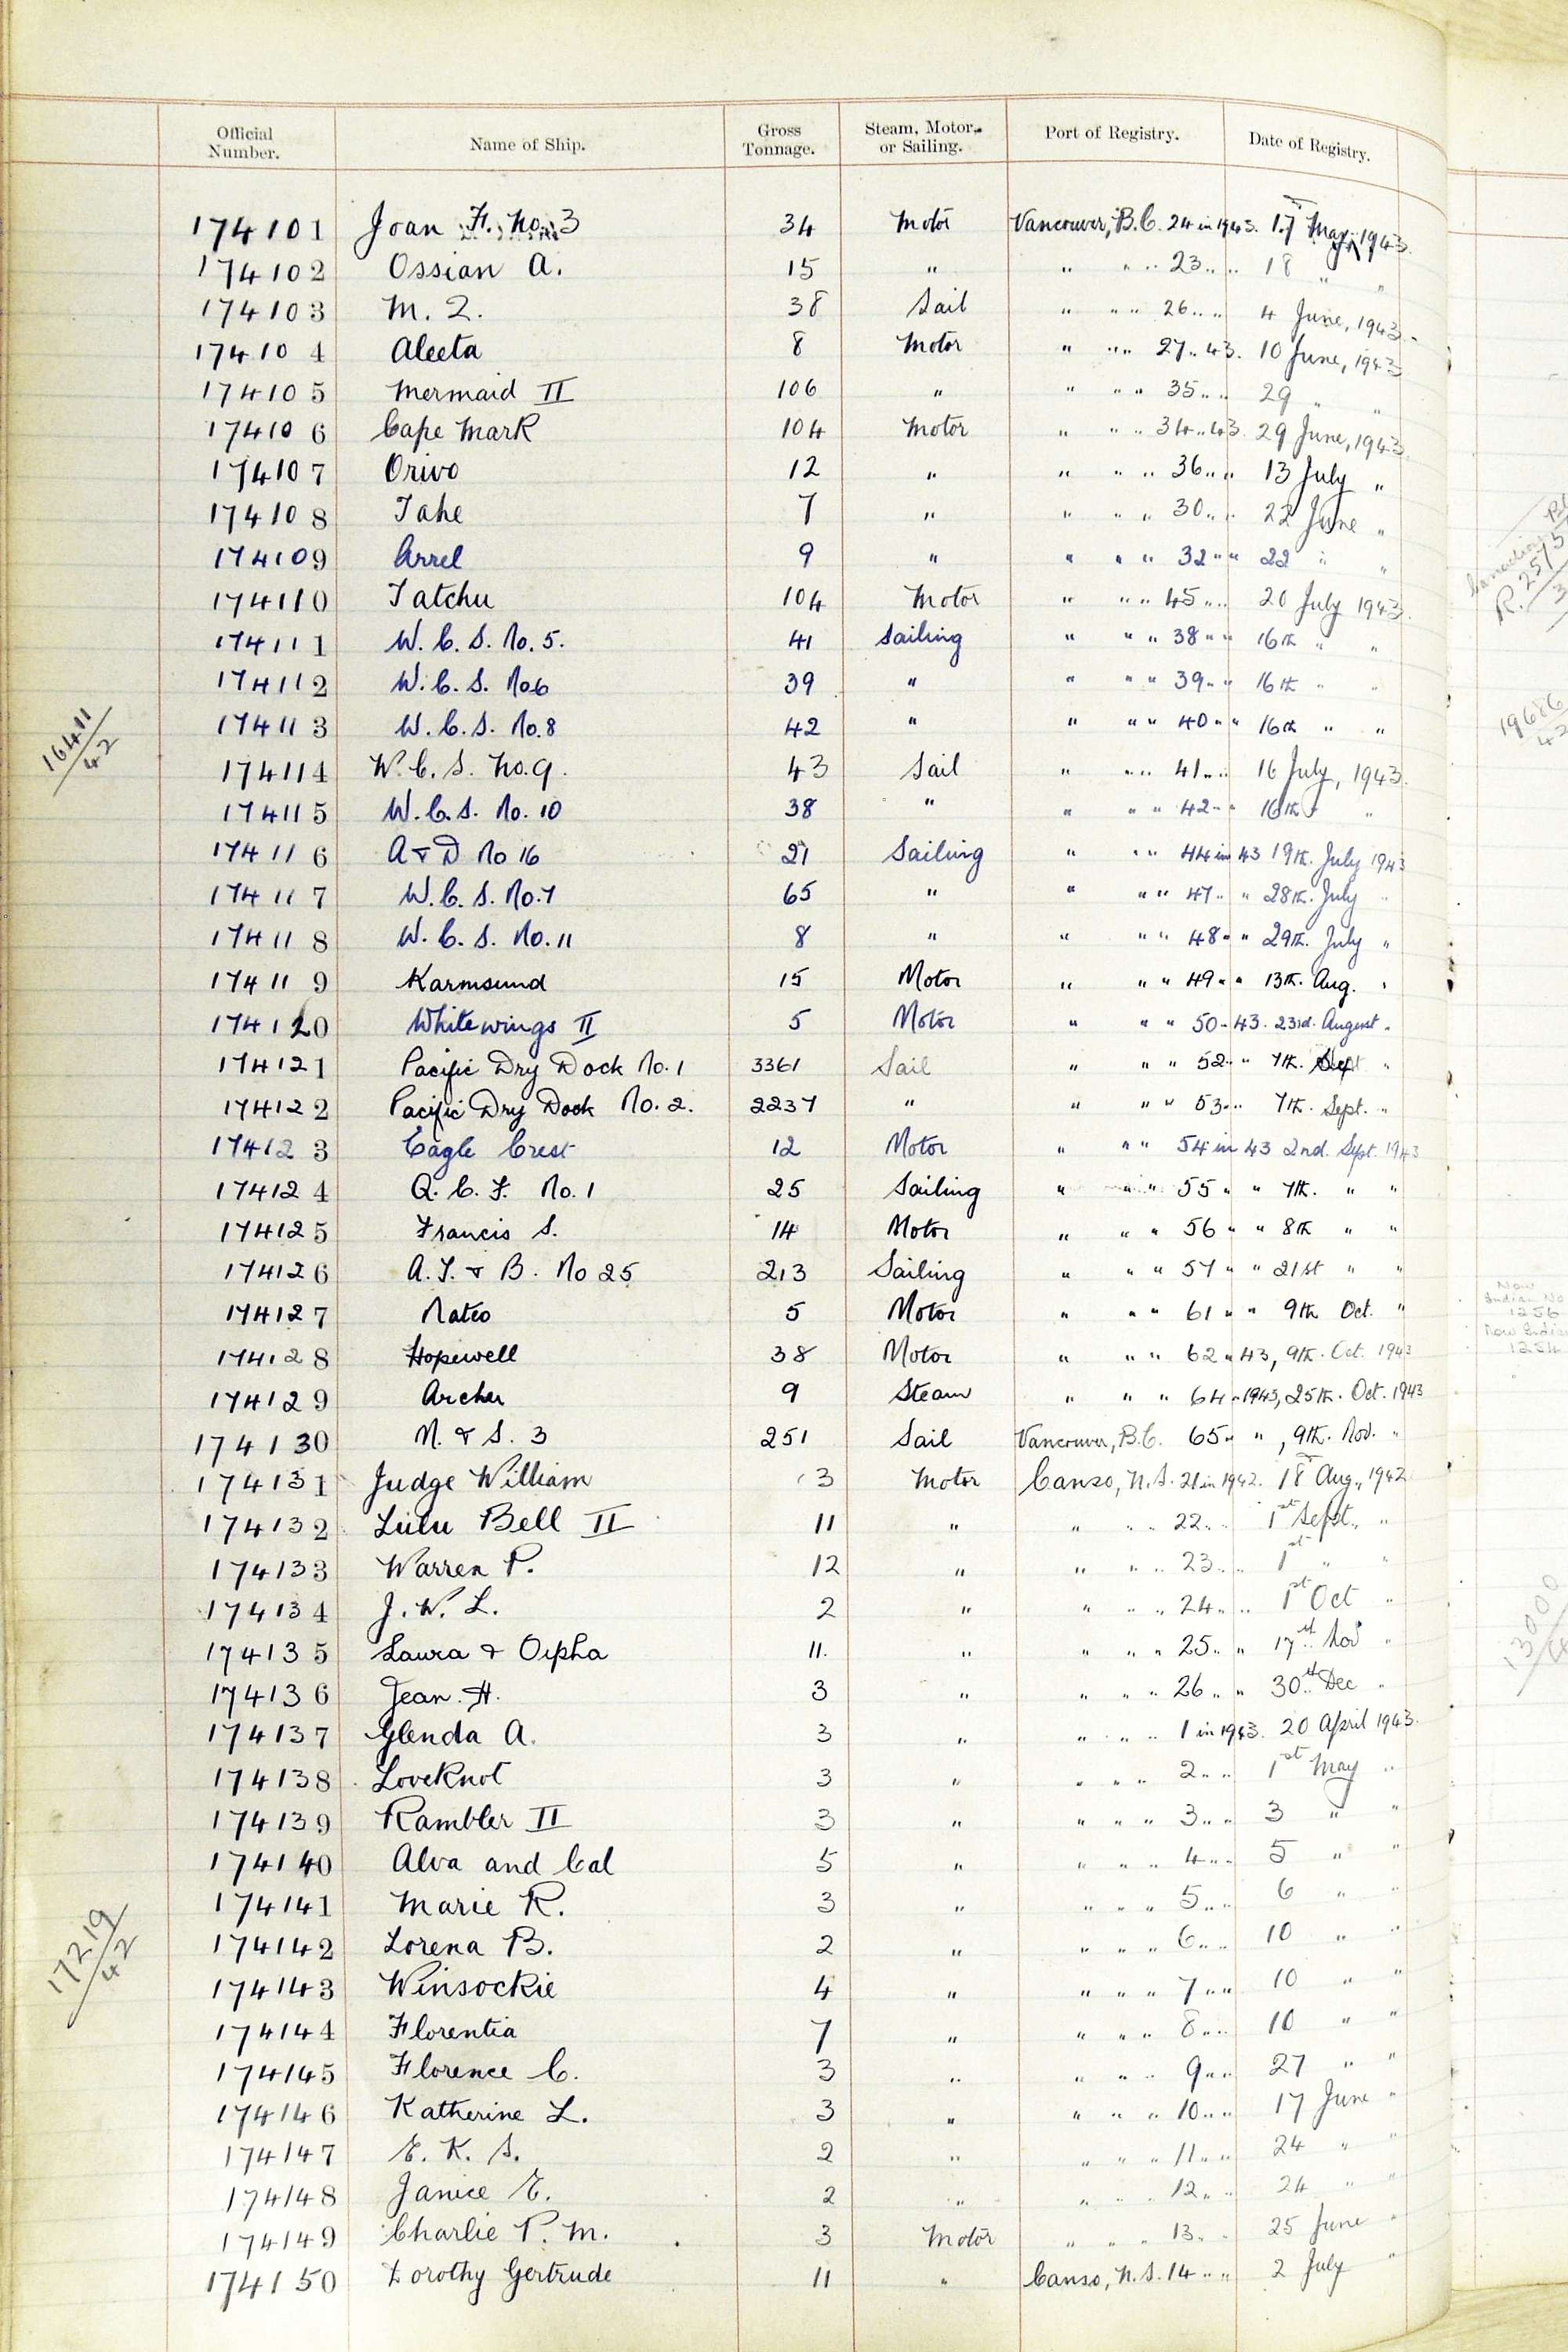 Official Number. Name of Ship. Gross Tonnage. Steam, Motor, or Sailing. Port of Registry. Date of Registry.
174101 Joan F. No. 3 34 Motor Vancouver, B.C. 24 in 1943. 17 May, 1943.
174102 Ossian A. 15 " " " " 23 " " 18 " "
174103 M. 2. 38 Sail " " " 26 " " 4 June, 1943.
174104 Aleeta 8 Motor " " " 27 " 43. 10 June, 1943
174105 Mermaid II 106 " " " " 35 " " 29 " "
174106 Cape Mark 104 Motor " " " 34 " 43. 29 June, 1943
174107 Orivo 12 " " " " 36 " " 13 July "
174108 Tahe 7 " " " " 30 " " 22 June "
174109 Arrel 9 " " " " 32 " " 22 " "
174110 Tatchu 104 Motor " " " 45 " " 20 July 1943.
174111 W.C.S. No. 5. 41 Sailing " " " 38 " " 16th " "
174112 W.C.S. No 6 39 " " " " 39 " " 16th " "
174113 W.C.S. No. 8 42 " " " " 40 " " 16th " "
16411/42
174114 W.C.S. No. 9. 43 Sail " " " 41 " " 16 July, 1943.
174115 W.C.S. No. 10 38 " " " " 42 " " 16th " "
174116 A & D No 16 21 Sailing " " " 44 in 43 19th. July 1943
174117 W.C.S. No. 7 65 " " " " 47 " " 28th. July "
174118 W.C.S. No. 11 8 " " " " 48 " " 29th. July "
174119 Karmsund 15 Motor " " " 49 " " 13th. Aug. "
174120 Whitewings II 5 Motor " " " 50 " 43. 23rd. August "
174121 Pacific Dry Dock No. 1 3361 Sail " " " 52 " " 7th. Sept "
174122 Pacific Dry Dock No. 2. 2237 " " " " 53 " " 7th. Sept. "
174123 Eagle Crest 12 Motor " " " 54 in 43 2nd. Sept. 1943
174124 Q.C.F. No. 1 25 Sailing " " " 55 " " 7th. " "
174125 Francis S. 14 Motor " " " 56 " " 8th " "
174126 A.T. & B. No 25 213 Sailing " " " 57 " " 21st " "
174127 Nateo 5 Motor " " " 61 " " 9th Oct. "
174128 Hopewell 38 Motor " " " 62 " 43, 9th. Oct. 1943
174129 Archer 9 Steam " " " 64 " 1943, 25th. Oct. 1943
174130 N. & S. 3 251 Sail Vancouver, B.C. 65 " ", 9th. Nov. "
174131 Judge William 3 Motor Canso, N.S. 21 in 1942. 18 Aug., 1942
174132 Lulu Bell II 11 " " " " 22 " " 1st Sept., "
174133 Warren P. 12 " " " " 23 " " 1st " "
174134 J.W.L. 2 " " " " 24 " " 1st Oct "
174135 Laura & Orpha 11. " " " " 25 " " 17th Nov "
174136 Jean. H. 3 " " " " 26 " " 30th Dec "
174137 Glenda A. 3 " " " " 1 in 1943. 20 April 1943.
174138 Loveknot 3 " " " " 2 " " 1st May "
174139 Rambler II 3 " " " " 3 " " 3 " "
174140 Alva and Cal 5 " " " " 4 " " 5 " "
174141 Marie R. 3 " " " " 5 " " 6 " "
174142 Lorena B. 2 " " " " 6 " " 10 " "
17219/42
174143 Winsockie 4 " " " " 7 " " 10 " "
174144 Florentia 7 " " " " 8 " " 10 " "
174145 Florence C. 3 " " " " 9 " " 27 " "
174146 Katherine L. 3 " " " " 10 " " 17 June "
174147 E.K.S. 2 " " " " 11 " " 24 " "
174148 Janice E. 2 " " " " 12 " " 24 " "
174149 Charlie P.M. 3 Motor " " " 13 " " 25 June "
174150 Dorothy Gertrude 11 " Canso, N.S. 14 " " 2 July "
19686/42
Now
Indian No
1256
Now Indian
1254
13000